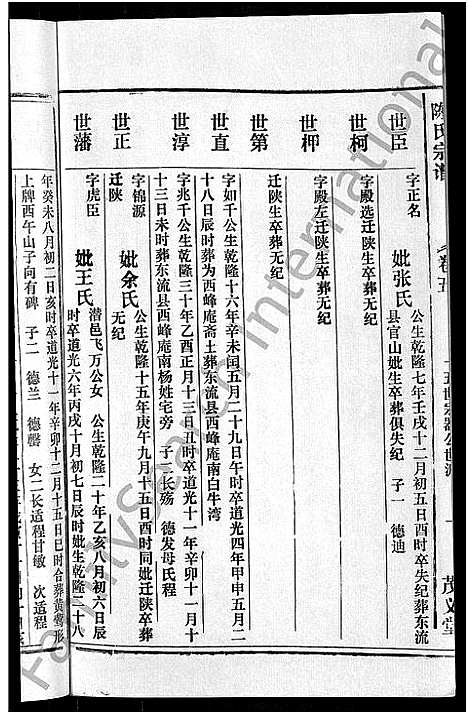 陈氏宗谱
卷五
茂义堂
世臣
字正名
妣张氏
公生乾隆七年壬戌十二月初五日酉时卒失纪葬东流
县官山妣生卒葬俱失纪 子一 德迪
世柯
字殿选迁陕生卒葬无纪
世柙
字殿左迁陕生卒葬无纪
世第
世直
字如千公生乾隆十六年辛未闰五月二十九日午时卒道光四年甲申五月二
十八日辰时葬为西峰庵斋土葬东流县西峰庵南白牛湾
世淳
字兆千公生乾隆三十年乙酉正月十三日丑时卒道光十一年辛卯十一月十
三日未时葬东流县西峰庵南杨姓宅旁 子二长殇 德发母氏程
世正
字锦源
迁陕
妣余氏
公生乾隆十五年庚午九月十五日酉时同妣迁陕卒葬
无纪
世藩
字虎臣
妣王氏
潜邑飞万公女 公生乾隆二十年乙亥八月初六日辰
时卒道光六年丙戌十月初七日辰时妣生乾隆二十八
年癸未八月初二日亥时卒道光十一年辛卯十二月十五日巳时合葬黄莺形
上牌酉午山子向有碑 子二 德兰 德馨 女二长适程甘敏 次适程
FamilySearch International